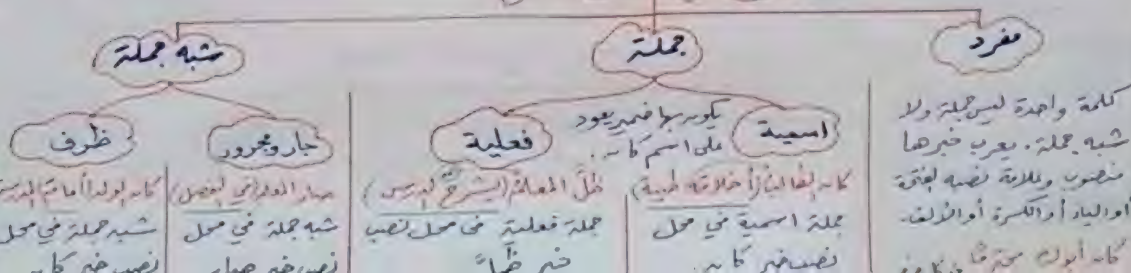 مفرد
كلمة واحدة ليس جملة ولا
شبه جملة. يعرب خبرها
منصوب وعلامة نصبه الفتحة
أو الياء أو الكسرة أو الألف.
كان أبوك محترمًا
جملة
اسمية
يكون بها ضمير يعود
على اسم كان.
كان الطالب (أخلاقه طيبة)
جملة اسمية في محل
نصب خبر كان.
فعلية
ظلَّ المعلمُ (يشرحُ الدرس)
جملة فعلية في محل نصب
خبر ظلَّ
شبه جملة
جار ومجرور
صار المعلم (في الفصل)
شبه جملة في محل
نصب خبر صار
ظرف
كان الولد (أمام المدرسة
شبه جملة في محل
نصب خبر كان